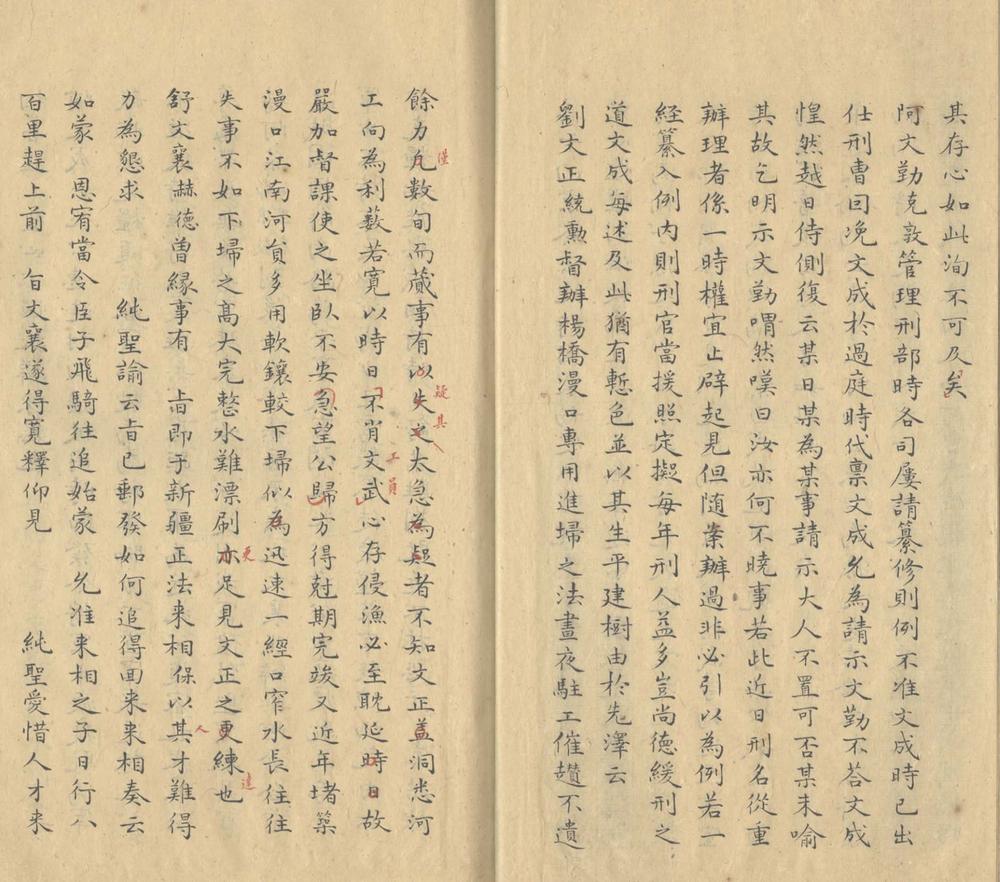 其存心如此洵不可及矣
阿文勤克敦管理刑部時各司屢請纂修則例不准文成時已出
仕刑曹囙浼文成於過庭時代禀文成允為請示文勤不荅文成
惶然越日侍側復云某日某為某事請示大人不置可否某未喻
其故乞明示文勤喟然嘆曰汝亦何不曉事若此近日刑名從重
辦理者係一時權宜止辟起見但随案辦過非必引以為例若一
経纂入例内則刑官當援照定擬每年刑人益多豈尚德緩刑之
道文成每述及此猶有慙色並以其生平建樹由於先澤云
劉文正統勲督辦楊橋漫口專用進埽之法晝夜駐工催趲不遺
餘力凢數旬而蕆事有以失之太急為疑者不知文正盖洞悉河
僅
疑其
工向為利薮若寛以時日不肖文武心存侵漁必至耽延時日故
工員
嚴加督課使之坐臥不安急望公歸方得尅期完竣又近年堵築
漫口江南河負多用軟鑲較下埽似為迅速一經口窄水長往往
失事不如下埽之髙大完整水難漂刷亦足見文正之更練也
更
達
舒文襄赫德曽緣事有 㫖即于新疆正法来相保以其才難得
人
力為懇求 純聖諭云㫖已郵發如何追得囬来来相奏云
如蒙 恩宥當令臣子飛騎往追始蒙 允准来相之子日行八
百里趕上前 㫖文襄遂得寛釋仰見 純聖愛惜人才来